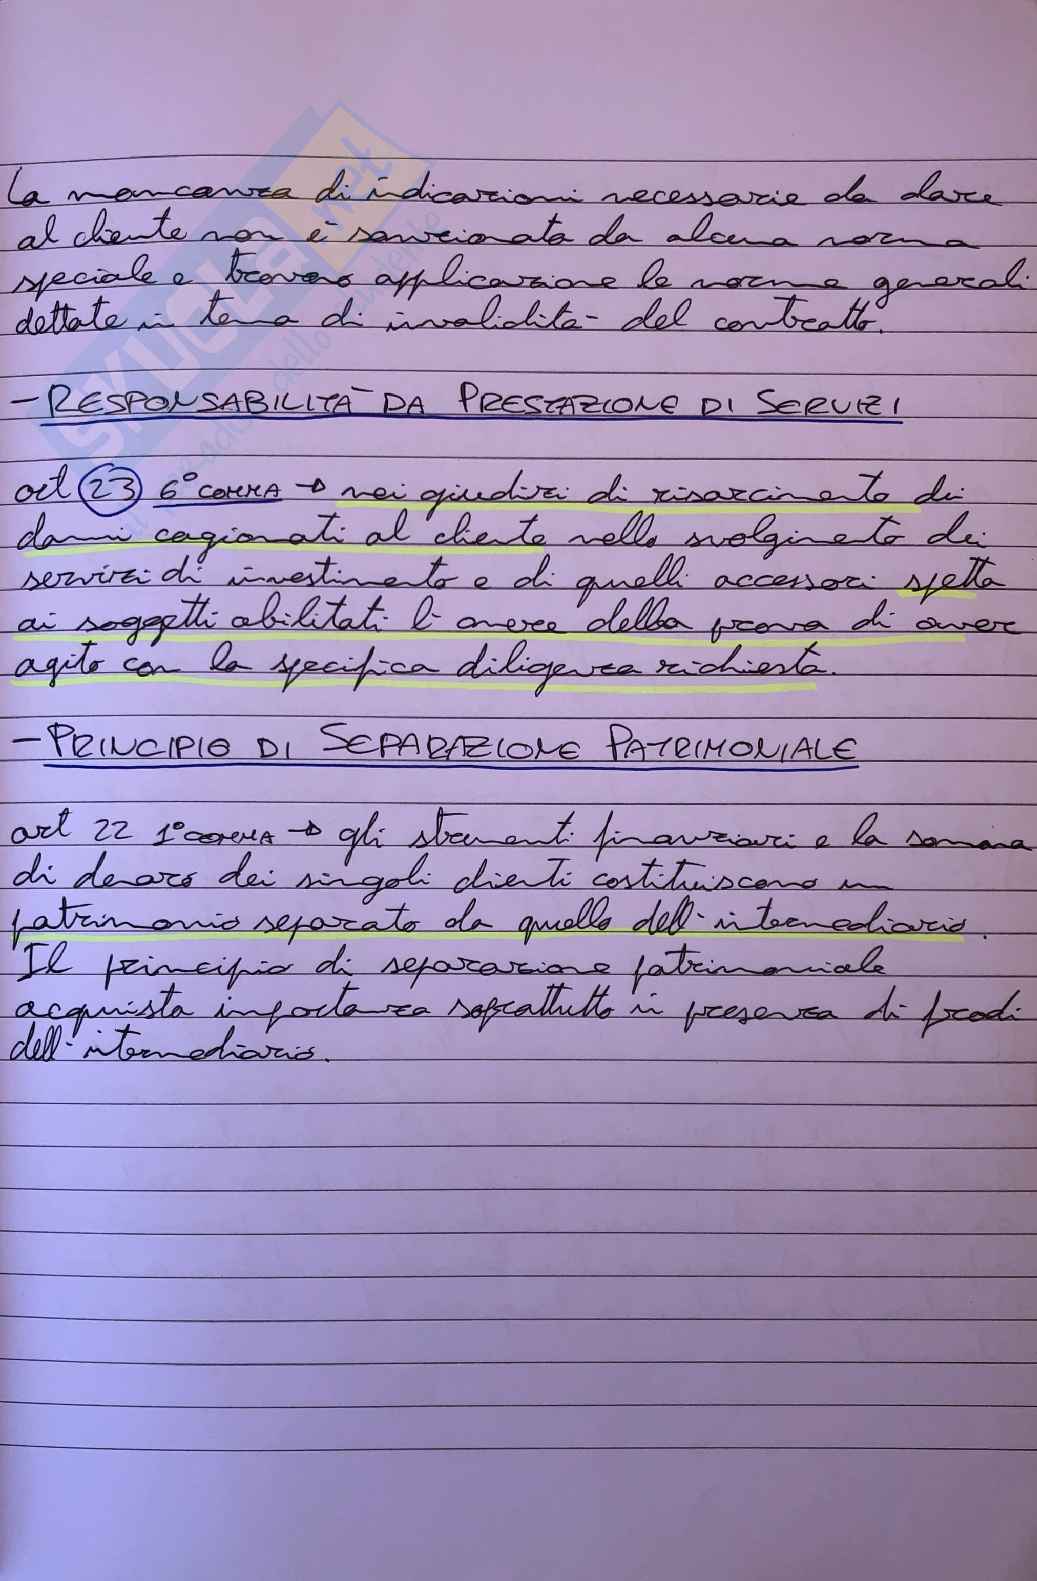 La mancanza di indicazioni necessarie da dare
al cliente non è sanzionata da alcuna norma
speciale e trovano applicazione le norme generali
dettate in tema di invalidità del contratto.
- RESPONSABILITÀ DA PRESTAZIONE DI SERVIZI
art 23 6° COMMA → nei giudizi di risarcimento dei
danni cagionati al cliente nello svolgimento dei
servizi di investimento e di quelli accessori spetta
ai soggetti abilitati l'onere della prova di aver
agito con la specifica diligenza richiesta.
- PRINCIPIO DI SEPARAZIONE PATRIMONIALE
art 22 1° COMMA → gli strumenti finanziari e la somma
di denaro dei singoli clienti costituiscono un
patrimonio separato da quello dell'intermediario.
Il principio di separazione patrimoniale
acquista importanza soprattutto in presenza di frodi
dell'intermediario.
SKUOLA.net